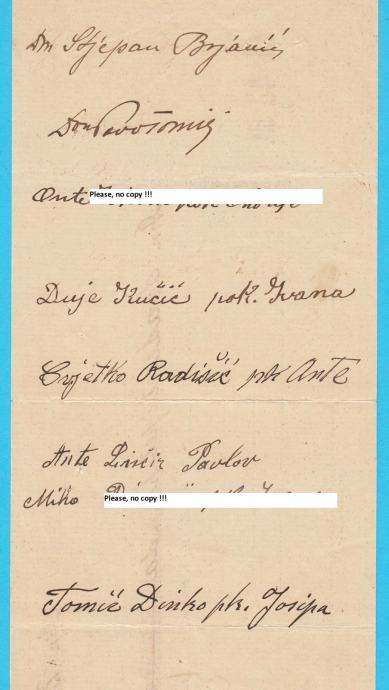 Don Stjepan
Don Pavo Tomić
Ante
Please, no copy !!!
Duje Kučić pok. Ivana
Cvjetko Radišić pk Ante
Ante Pavlov
Miko
Please, no copy !!!
Tomić Dinko pk. Josipa